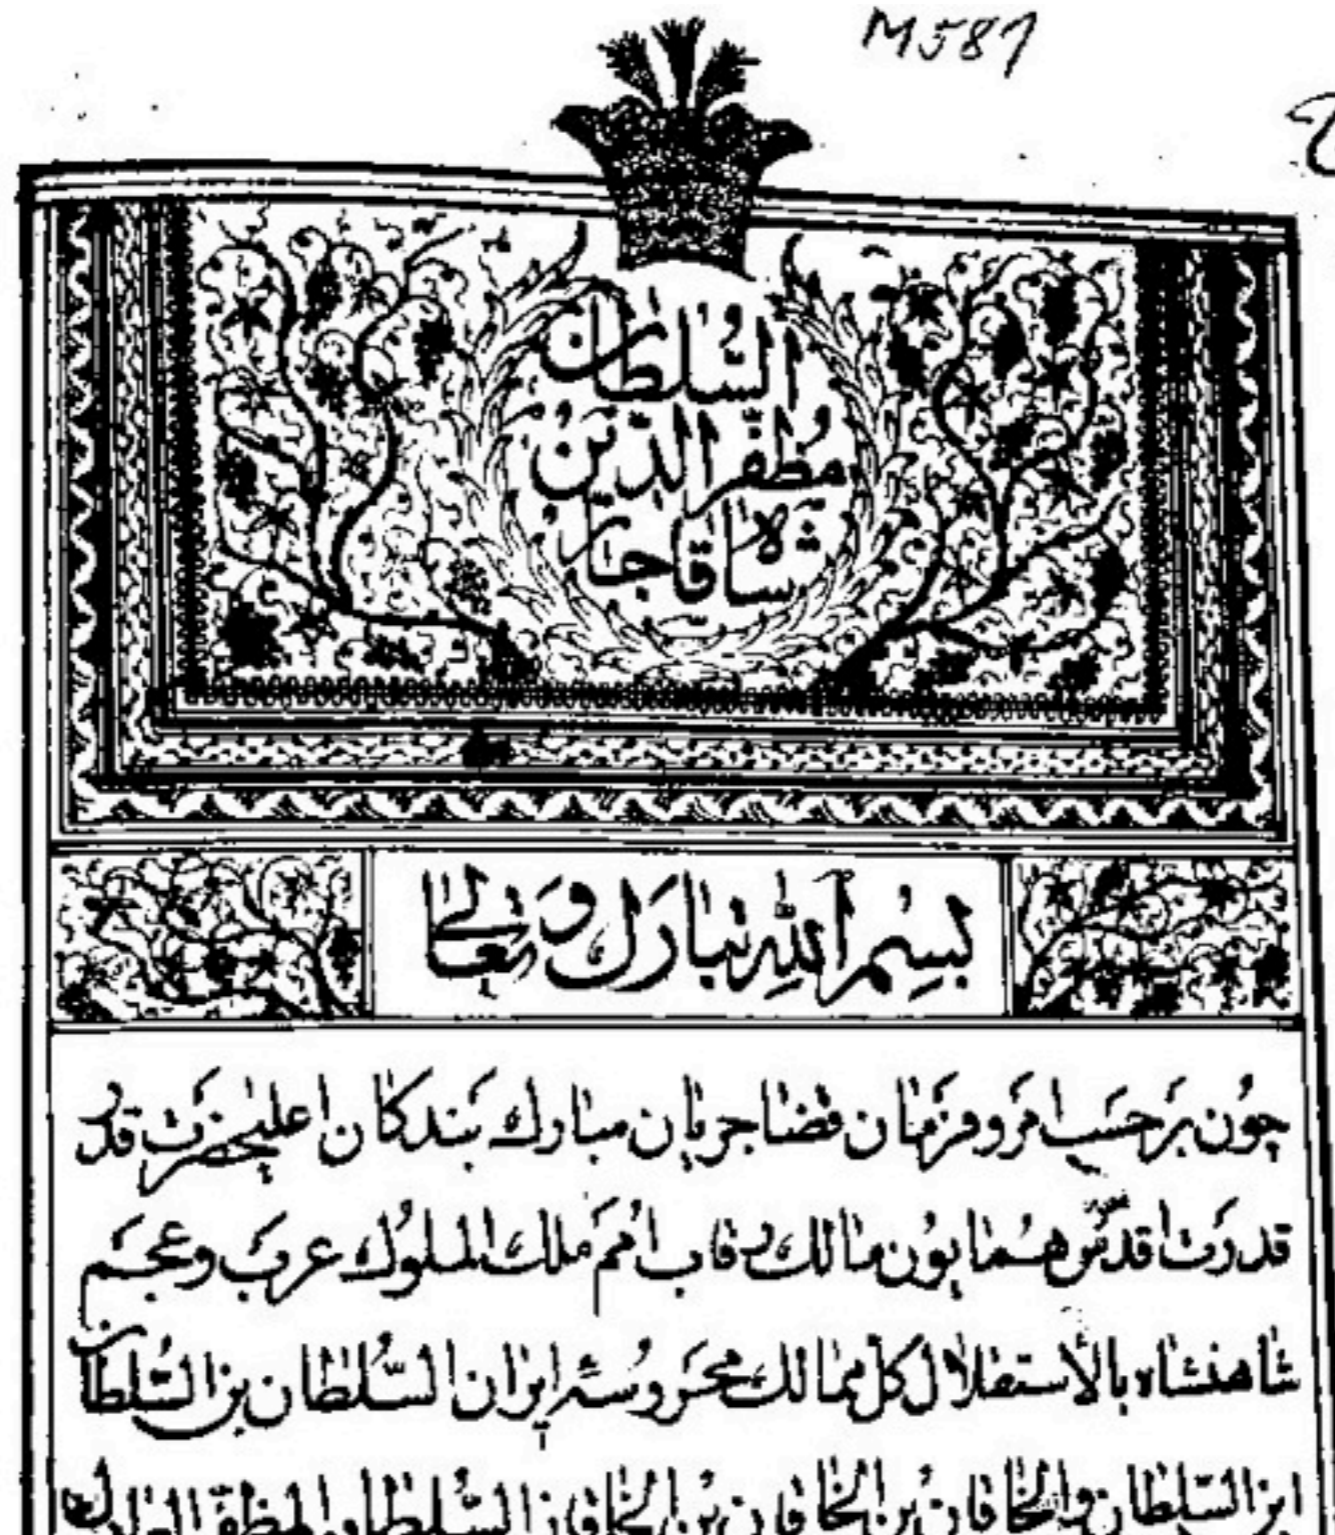 M581
السُّلطان
مُظفّر الدّین
شاه قاجار
بسم الله تبارک و تعالی
چون برحسب امر و فرمان قضا جریان مبارک بندکان اعلیحضرت قدر
قدرت اقدس همایون مالک رقاب امم ملک الملوک عرب و عجم
شاهنشاه بالأستقلال کل ممالک محروسهٔ ایران السّلطان بن السّلطان
ابن السّلطان والخاقان بن الخاقان بن الخاقان السّلطان مظفر الدین